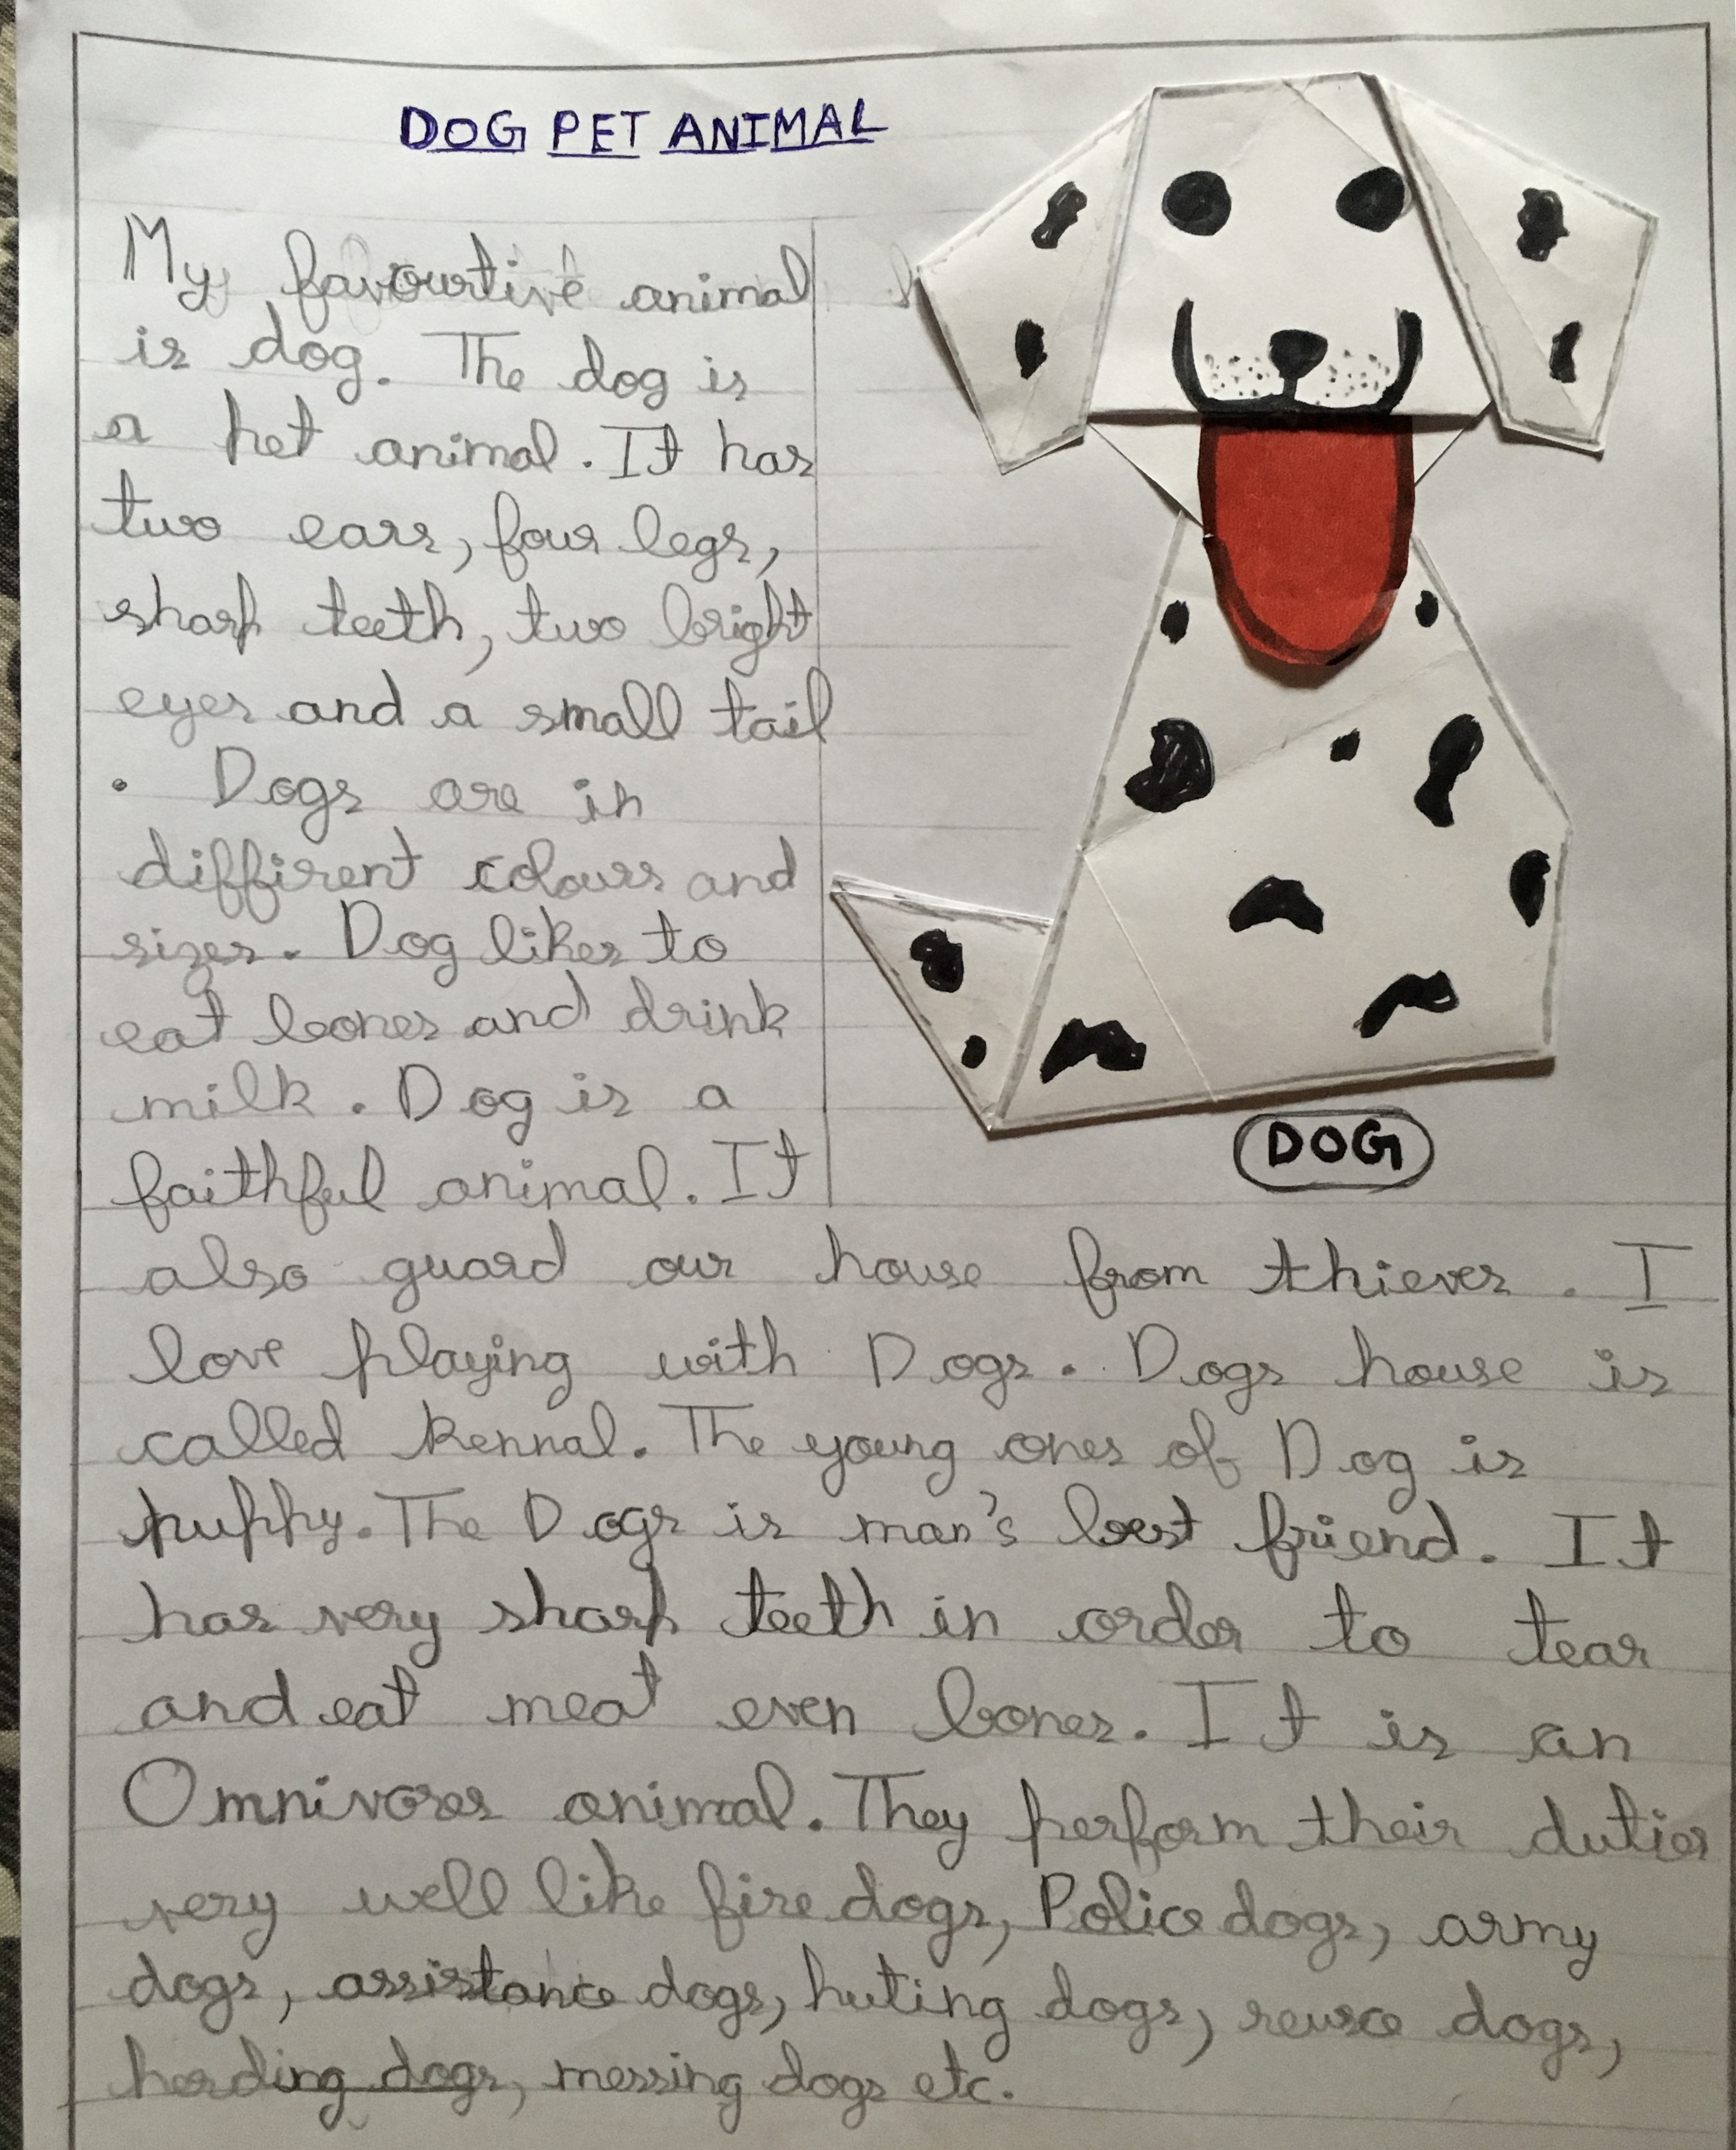 DOG PET ANIMAL
My favourtive animal
is dog. The dog is
a pet animal. It has
two ears, four legs,
sharp teeth, two bright
eyes and a small tail
. Dogs are in
diffirent colours and
sizes. Dog likes to
eat bones and drink
milk. Dog is a
faithful animal. It
DOG
also guard our house from thieves. I
love playing with Dogs. Dogs house is
called kennal. The young ones of Dog is
puppy. The Dogs is man's best friend. It
has very sharp teeth in order to tear
and eat meat even bones. It is an
Omnivores animal. They perform their duties
very well like fire dogs, Police dogs, army
dogs, assistance dogs, huting dogs, reusce dogs,
herding dogs, messing dogs etc.